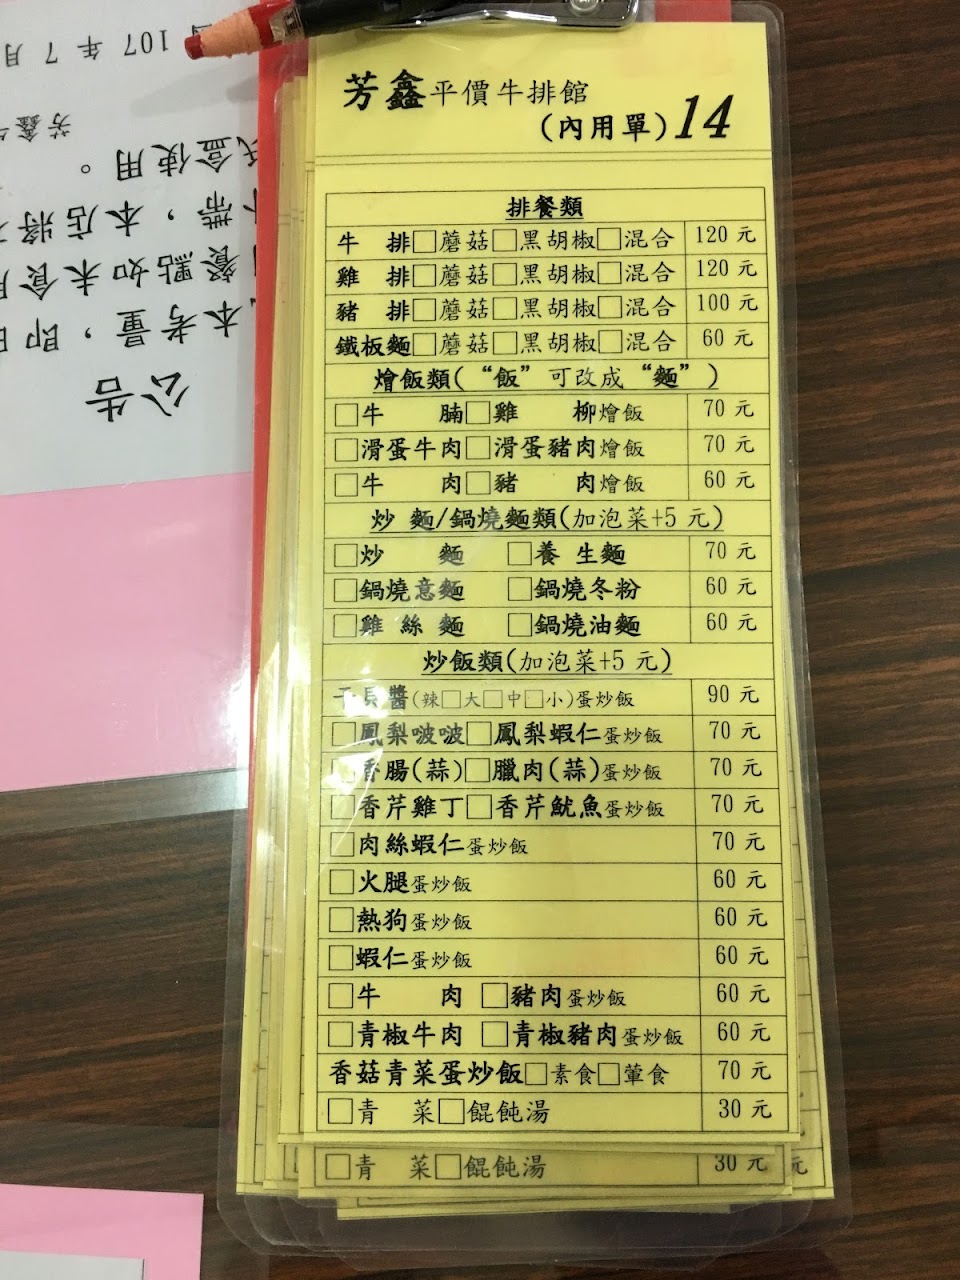 芳鑫平價牛排館
(內用單)14
排餐類
牛 排□蘑菇□黑胡椒□混合 120 元
雞 排□蘑菇□黑胡椒□混合 120 元
豬 排□蘑菇□黑胡椒□混合 100 元
鐵板麵□蘑菇□黑胡椒□混合 60 元
燴飯類(“飯”可改成“麵”)
□牛 腩□雞 柳燴飯 70 元
□滑蛋牛肉□滑蛋豬肉燴飯 70 元
□牛 肉□豬 肉燴飯 60 元
炒 麵/鍋燒麵類(加泡菜+5 元)
□炒 麵 □養 生麵 70 元
□鍋燒意麵 □鍋燒冬粉 60 元
□雞 絲 麵 □鍋燒油麵 60 元
炒飯類(加泡菜+5 元)
干貝醬(辣□大□中□小)蛋炒飯 90 元
□鳳梨啵啵□鳳梨蝦仁蛋炒飯 70 元
□香腸(蒜)□臘肉(蒜)蛋炒飯 70 元
□香芹雞丁□香芹魷魚蛋炒飯 70 元
□肉絲蝦仁蛋炒飯 70 元
□火腿蛋炒飯 60 元
□熱狗蛋炒飯 60 元
□蝦仁蛋炒飯 60 元
□牛 肉 □豬肉蛋炒飯 60 元
□青椒牛肉 □青椒豬肉蛋炒飯 60 元
香菇青菜蛋炒飯□素食□葷食 70 元
□青 菜□餛飩湯 30 元
□青 菜□餛飩湯 30 元 元
公告
本考量，即日
餐點如未食用
帶，本店將
盒使用。
芳鑫
107 年 7 月